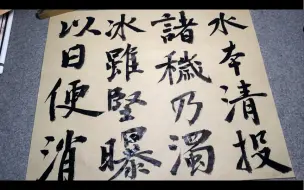 水本清投
諸穢乃濁
冰雖堅曝
以日便消